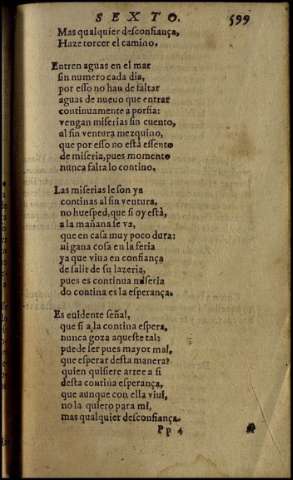 SEXTO. 599
Mas qualquier desconfiança,
Haze torcer el camino.
Entren aguas en el mar
sin numero cada dia,
por esso no han de faltar
aguas de nueuo que entrar
continuamente a porfia:
vengan miserias sin cuento,
al sin ventura mezquino,
que por esso no está essento
de miseria, pues momento
nunca falta lo contino.
Las miserias le son ya
continas al sin ventura,
no huesped, que si oy está,
a la mañana se va,
que en casa muy poco dura:
ni gana cosa en la feria
ya que viua en confiança
de salir de su lazeria,
pues es continua miseria
do contina es la esperança.
Es euidente señal,
que si a la contina espera,
nunca goza aqueste tal:
puede ser pues mayor mal,
que esperar desta manera?
quien quisiere arree a si
desta contina esperança,
que aunque con ella viui,
no la quiero para mi,
mas qualquier desconfiança.
Pp 4